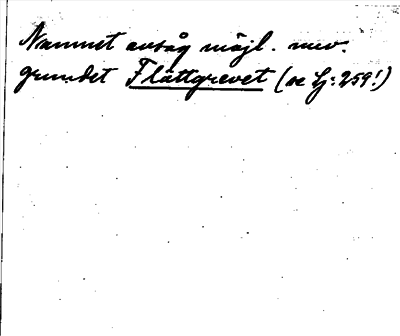 Namnet avsåg möjl. nuv.
grundet Flättgrevet (se Lj: 259!)